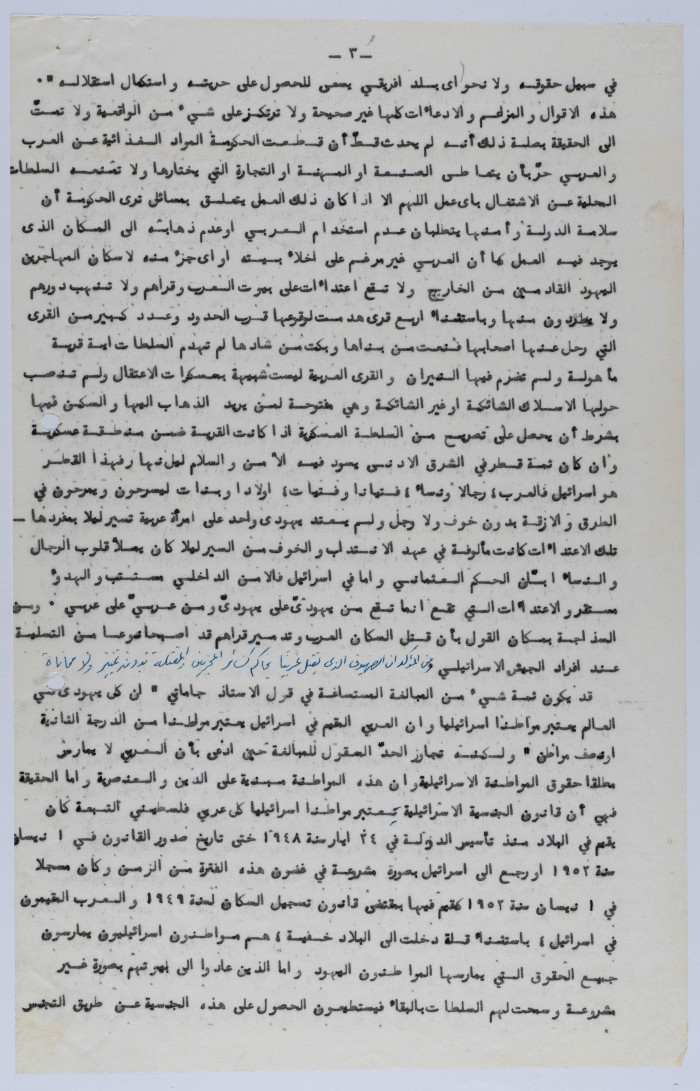 — ٣ —
في سبيل حقوقه ولا نحو اى بلد افريقي يسعى للحصول على حريته واستكمال استقلاله " ٠
هذه الاقوال والمزاعم والادعاءات كلها غير صحيحة ولا ترتكز على شيء من الواقعية ولا تمتّ
الى الحقيقة بصلة ذلك أنه لم يحدث قطّ أن قطعت الحكومة المواد الغذائية عن العرب
والعربي حرّ بأن يتعاطى الصنعة او المهنة او التجارة التي يختارها ولا تمنعه السلطات
المحلية عن الاشتغال باى عمل اللهم الا اذا كان ذلك العمل يتعلق بمسائل ترى الحكومة أن
سلامة الدولة وأمنها يتطلبان عدم استخدام العربي او عدم ذهابه الى المكان الذى
يوجد فيه العمل كما أن العربي غير مرغم على اخلاء بيته او اى جزء منه لاسكان المهاجرين
اليهود القادمين من الخارج ولا تقع اعتداءات على بيوت العرب وقراهم ولا تنهب دورهم
ولا يطردون منها وباستثناء اربع قرى هدمت لوقوعها قرب الحدود وعدد كبير من القرى
التي رحل عنها اصحابها فنعت من بناها وبكت من شادها لم تهدم السلطات اية قرية
مأهولة ولم تضرم فيها النيران والقرى العربية ليست شبيهة بمعسكرات الاعتقال ولم تنصب
حولها الاسلاك الشائكة او غير الشائكة وهي مفتوحة لمن يريد الذهاب اليها والسكن فيها
بشرط أن يحصل على تصريح من السلطة العسكرية اذا كانت القرية ضمن منطقة عسكرية
وان كان ثمة قطر في الشرق الادنى يسود فيه الأمن والسلام ليل نهار فهذا القطر
هو اسرائيل فالعرب ٤ رجالا ونساء ٤ فتيانا وفتيات ٤ اولادا وبنات ليسرحون ويمرحون في
الطرق والازقة بدون خوف ولا وجل ولم يعتد يهودى واحد على امرأة عربية تسير ليلا بمفردها —
تلك الاعتداءات كانت مألوفة في عهد الانتداب والخوف من السير ليلا كان يملأ قلوب الرجال
والنساء ابّان الحكم العثماني واما في اسرائيل فالامن الداخلي مستتب والهدوء
مستقر والاعتداءات التي تقع انما تقع من يهودىّ على يهودىّ ومن عربيّ على عربي ٠ ومن
السذاجة بمكان القول بأن قتل السكان العرب وتدمير قراهم قد اصبحا نوعا من التسلية
عند افراد الجيش الاسرائيلي ومن المؤكد ان الصهيوني الذى يقتل عربيا يحاكم كسائر المجرمين والقتلة بدون تمييز ولا محاباة
قد يكون ثمة شيء من المبالغة المستساغة في قول الاستاذ جاماتي " ان كل يهودى في
العالم يعتبر مواطنا اسرائيليا وان العربي المقيم في اسرائيل يعتبر مواطنا من الدرجة الثانية
او نصف مواطن " ولكنه تجاوز الحدّ المعقول للمبالغة حين ادعى بأن العربي لا يمارس
مطلقا حقوق المواطنة الاسرائيلية وان هذه المواطنة مبنية على الدين والعنصرية واما الحقيقة
فهي أن قانون الجنسية الاسرائيلية يعتبر مواطنا اسرائيليا كل عربي فلسطيني التبعة كان
يقيم في البلاد منذ تأسيس الدولة في ٢٤ ايار سنة ١٩٤٨ حتى تاريخ صدور القانون في ١ نيسان
سنة ١٩٥٢ او رجع الى اسرائيل بصورة مشروعة في غضون هذه الفترة من الزمن وكان مسجلا
في ١ نيسان سنة ١٩٥٢ كمقيم فيها بمقتضى قانون تسجيل السكان لسنة ١٩٤٩ والعرب المقيمون
في اسرائيل ٤ باستثناء قلة دخلت الى البلاد خفية ٤ هم مواطنون اسرائيليون يمارسون
جميع الحقوق التي يمارسها المواطنون اليهود واما الذين عادوا الى بيوتهم بصورة غير
مشروعة وسمحت لهم السلطات بالبقاء فيستطيعون الحصول على هذه الجنسية عن طريق التجنس